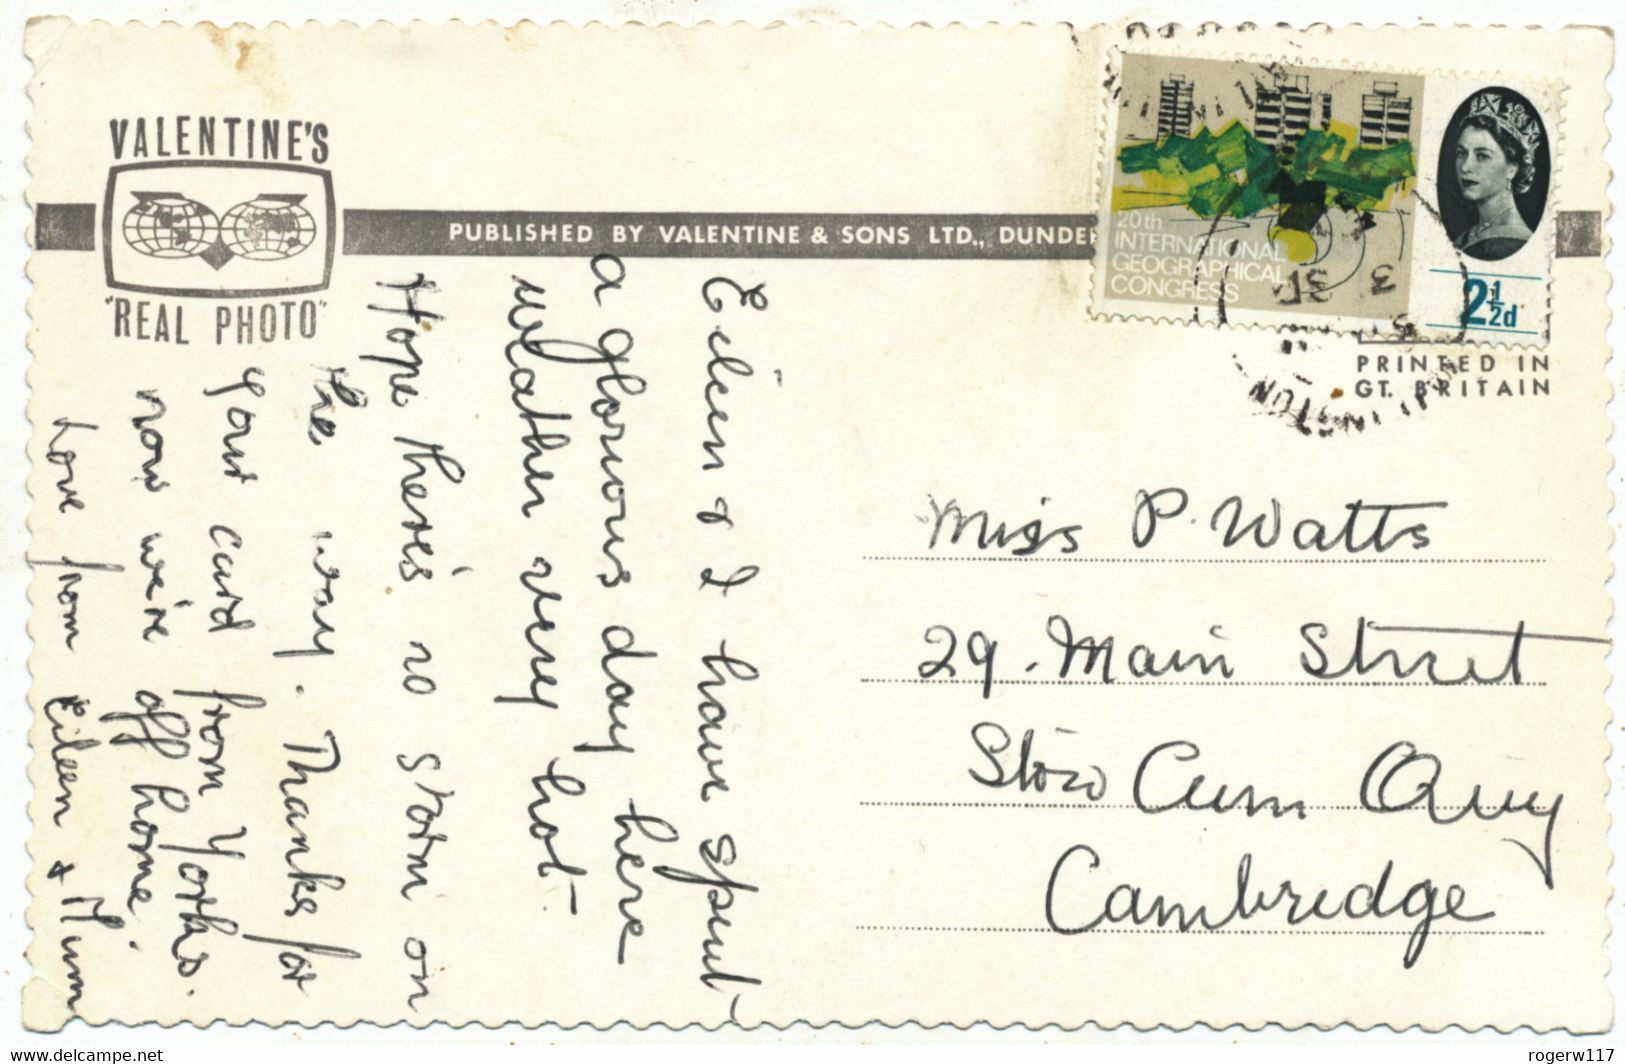 VALENTINE'S
"REAL PHOTO"
PUBLISHED BY VALENTINE & SONS LTD., DUNDEE
20th
INTERNATIONAL
GEOGRAPHICAL
CONGRESS
2½d
PRINTED IN
GT. BRITAIN
Eileen & I have spent
a glorious day here
weather very hot.
Hope there's no storm on
the way. Thanks for
your card from Yorks.
now we're off home.
Love from Eileen & Mum
Miss P. Watts
29. Main Street
Stow Cum Quy
Cambridge
www.delcampe.net
rogerw117